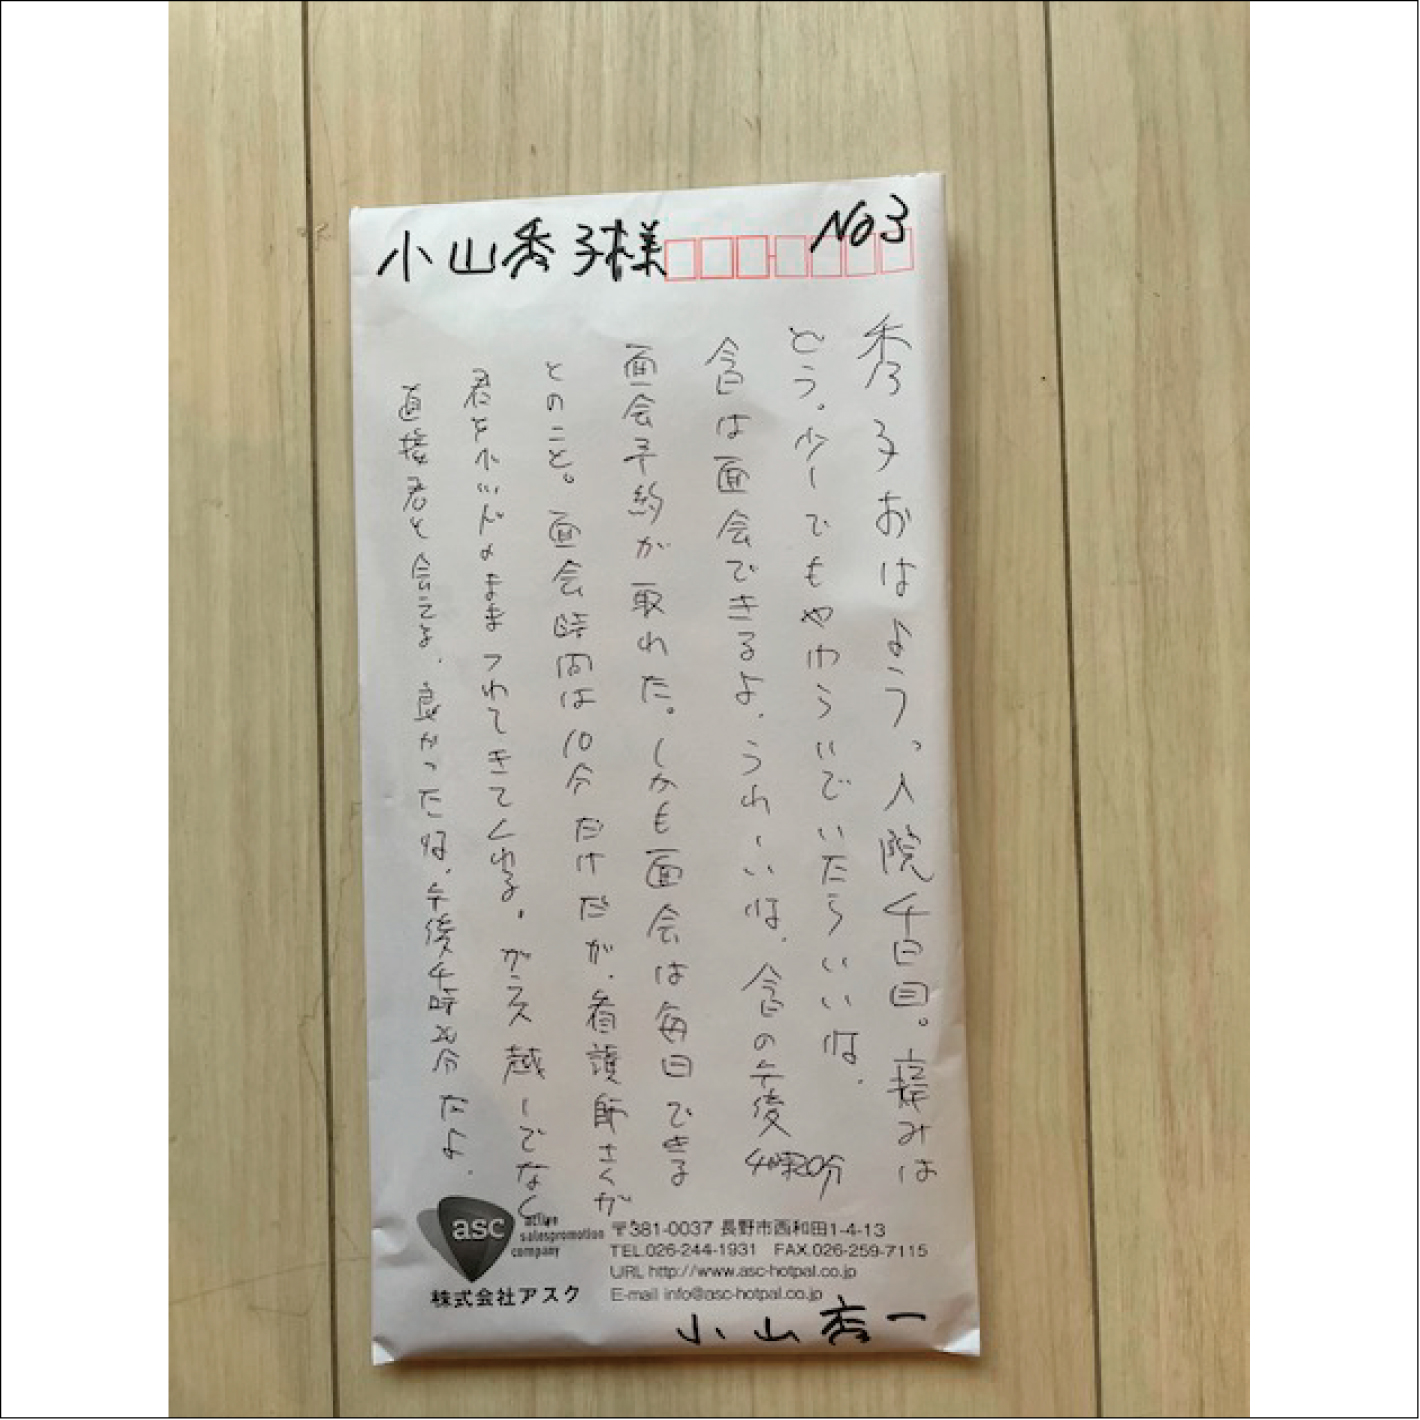 小山秀子様
No3
秀子おはよう。入院4日目。痛みは
どう。少しでもやわらいでいたらいいね。
今日は面会できるよ。うれしいね。今日の午後4時20分
面会予約が取れた。しかも面会は毎日できる
とのこと。面会時間は10分だけだが、看護師さんが
君をベッドのままつれてきてくれる。ガラス越しでなく
直接君と会えるよ。良かったね。午後4時20分だよ。
asc
active
salespromotion
company
株式会社アスク
〒381-0037 長野市西和田1-4-13
TEL.026-244-1931 FAX.026-259-7115
URL http://www.asc-hotpal.co.jp
E-mail info@asc-hotpal.co.jp
小山秀一